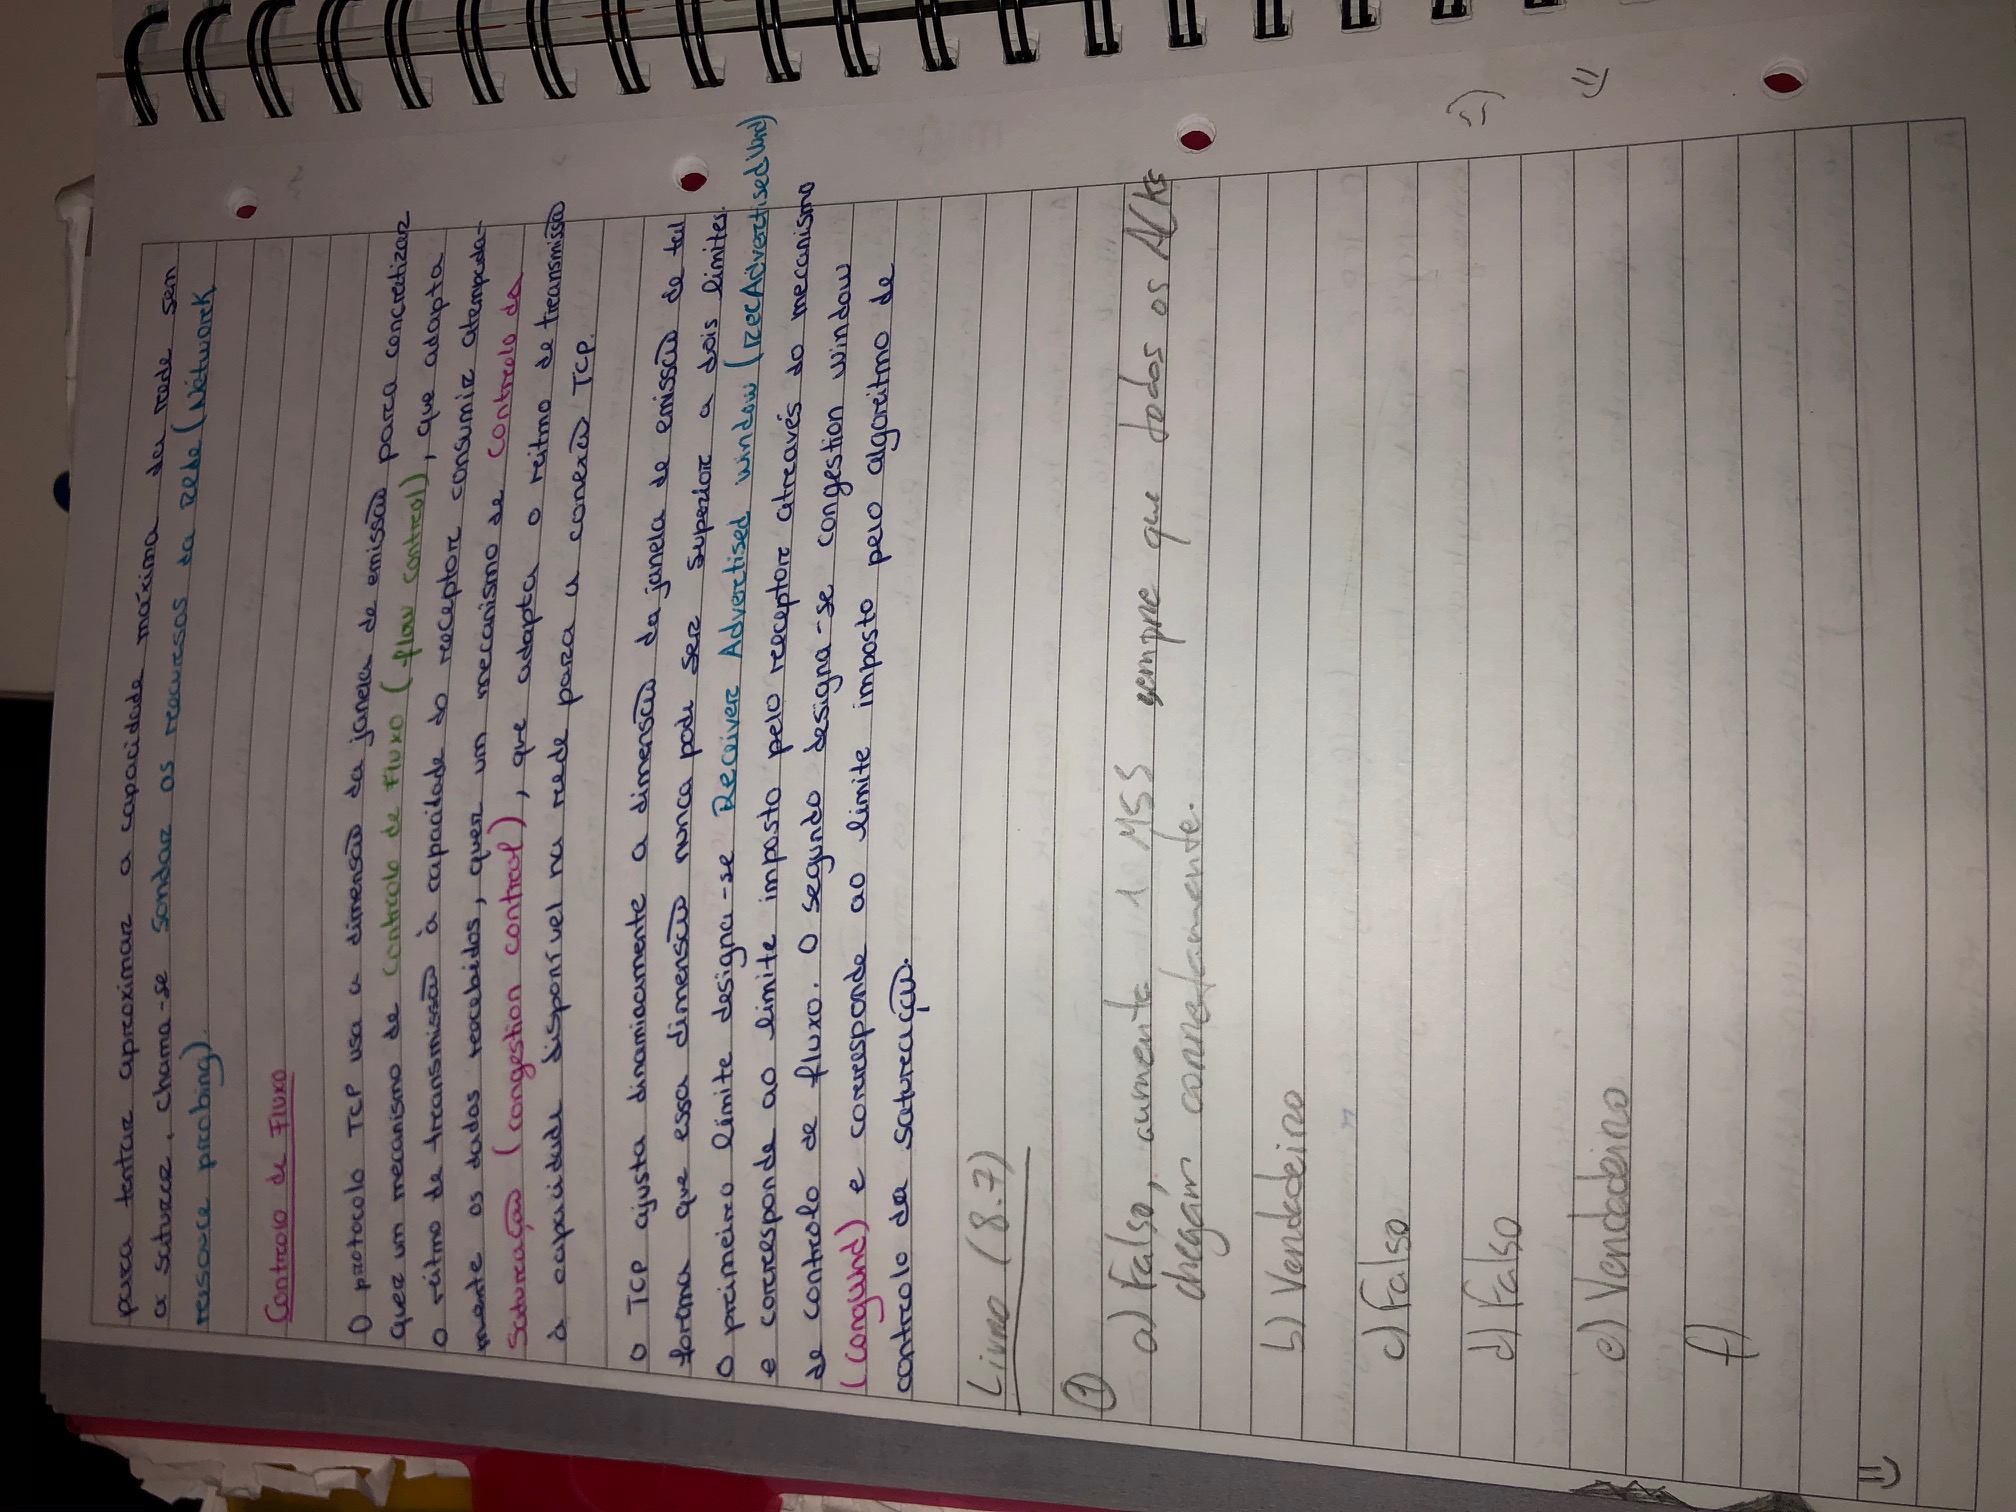 para tentar aproximar a capacidade máxima da rede sem
a saturar. Chama-se Sondar os recursos da Rede (Network
resource probing).
Controlo de Fluxo
O protocolo TCP usa a dimensão da janela de emissão para concretizar
quer um mecanismo de controlo de fluxo (flow control), que adapta
o ritmo de transmissão à capacidade do receptor consumir atempada-
mente os dados recebidos, quer um mecanismo de controlo da
saturação (congestion control), que adapta o ritmo de transmissão
à capacidade disponível na rede para a conexão TCP.
O TCP ajusta dinamicamente a dimensão da janela de emissão de tal
forma que essa dimensão nunca pode ser superior a dois limites.
O primeiro limite designa-se Receiver Advertised window (RecAdvertisedWnd)
e corresponde ao limite imposto pelo receptor através do mecanismo
de controlo de fluxo. O segundo designa-se congestion window
(CongWnd) e corresponde ao limite imposto pelo algoritmo de
controlo da saturação.
Livro (8.7)
1
a) Falso, aumenta 1 MSS sempre que todos os ACKs
chegam corretamente.
b) Verdadeiro
c) Falso
d) Falso
e) Verdadeiro
f)